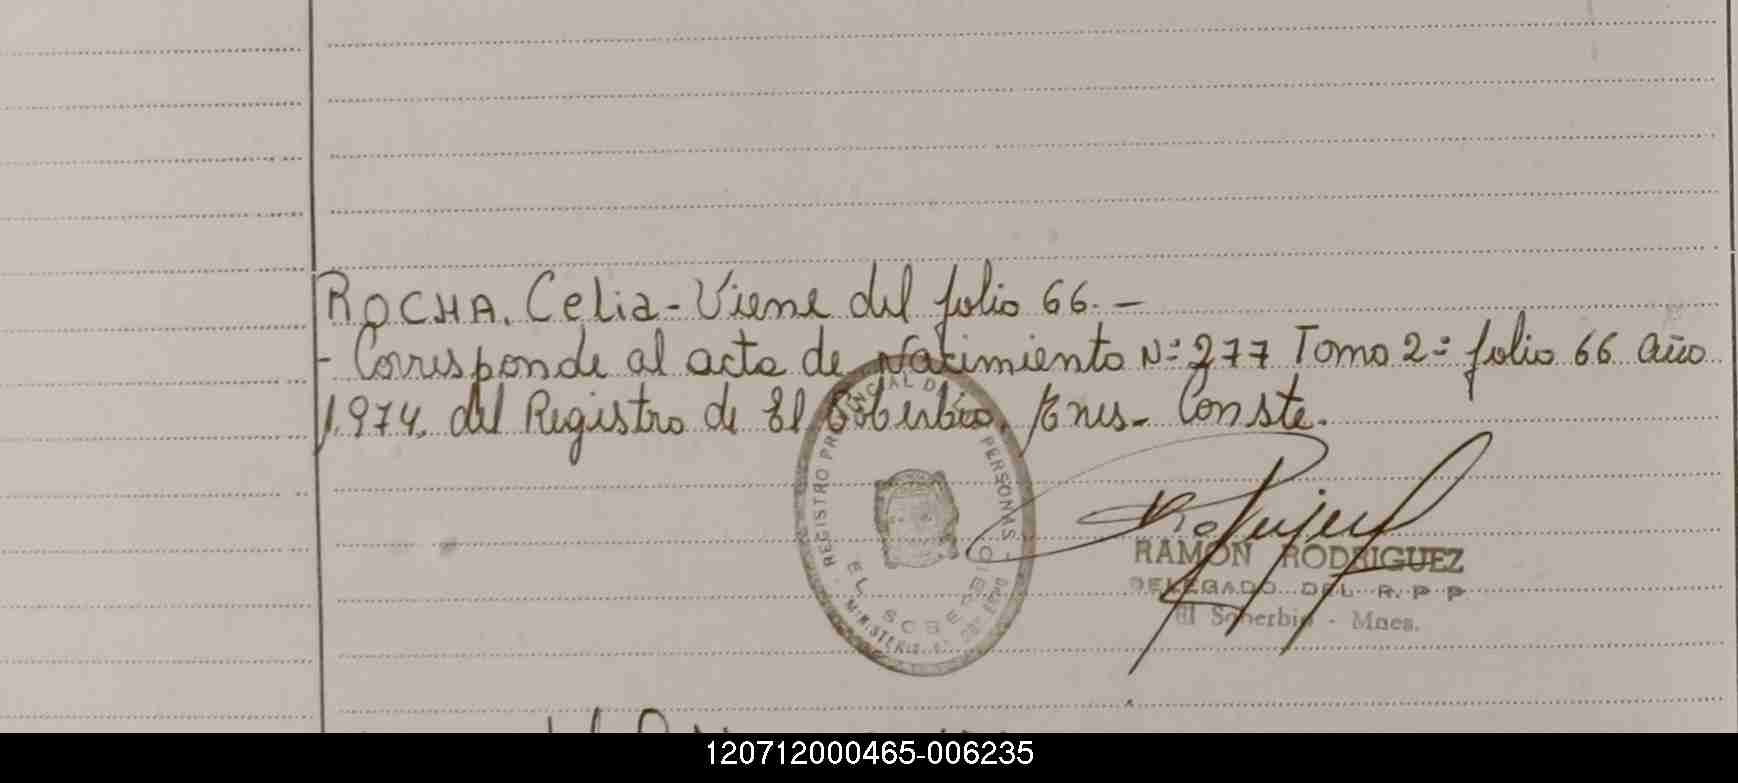 ROCHA. Celia - Viene del folio 66. -
- Corresponde al acta de Nacimiento N: 277 Tomo 2: folio 66 año
1.974. del Registro de El Soberbio, Mnes - Conste.
REGISTRO PROVINCIAL DE PERSONAS
EL SOBERBIO
RAMON RODRIGUEZ
DELEGADO DEL R. P P
El Soberbio - Mnes.
120712000465-006235